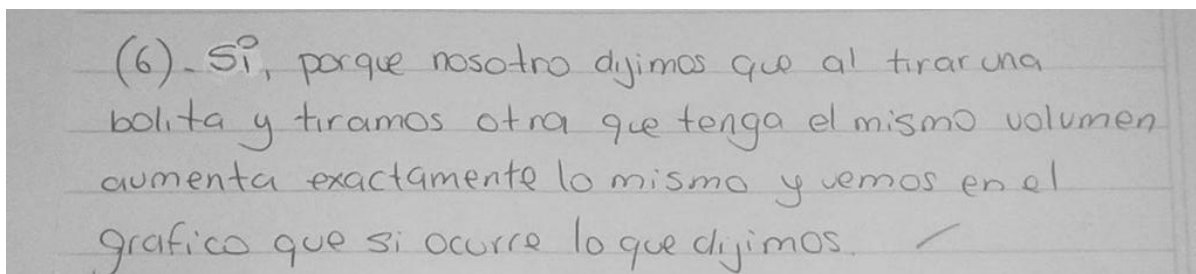 (6)- Si, porque nosotro dijimos que al tirar una
bolita y tiramos otra que tenga el mismo volumen
aumenta exactamente lo mismo y vemos en el
grafico que si ocurre lo que dijimos.